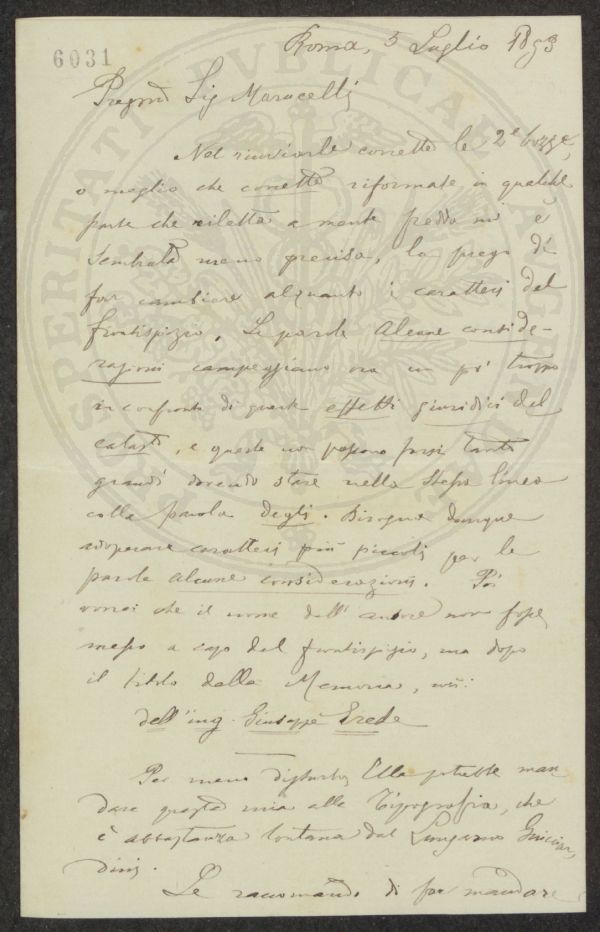 6031
Roma, 5 Luglio 1893
Pregmo Sig Maracelli
Nel rinviarle corrette le 2e bozze,
o meglio che corrette riformate in qualche
parte che riletta a mente fredda mi è
sembrata meno precisa, la prego di
far cambiare alquanto i caratteri del
frontispizio. Le parole Alcune conside-
razioni campeggiano ora un po' troppo
in confronto di queste effetti giuridici del
catasto, e queste non possono farsi tanto
grandi dovendo stare nella stessa linea
colla parola degli. Bisogna dunque
adoperare caratteri più piccoli per le
parole alcune considerazioni. Poi
vorrei che il nome dell' autore non fosse
messo a capo del frontispizio, ma dopo
il titolo della Memoria, così:
dell' ing. Giuseppe Erede
Per meno disturbo, Ella potrebbe man
dare questa mia alla Tipografia, che
è abbastanza lontana dal Lungarno Guicciar,
dini.
Le raccomando di far mandare
PROSPERITATI PUBLICAE AUGENDAE